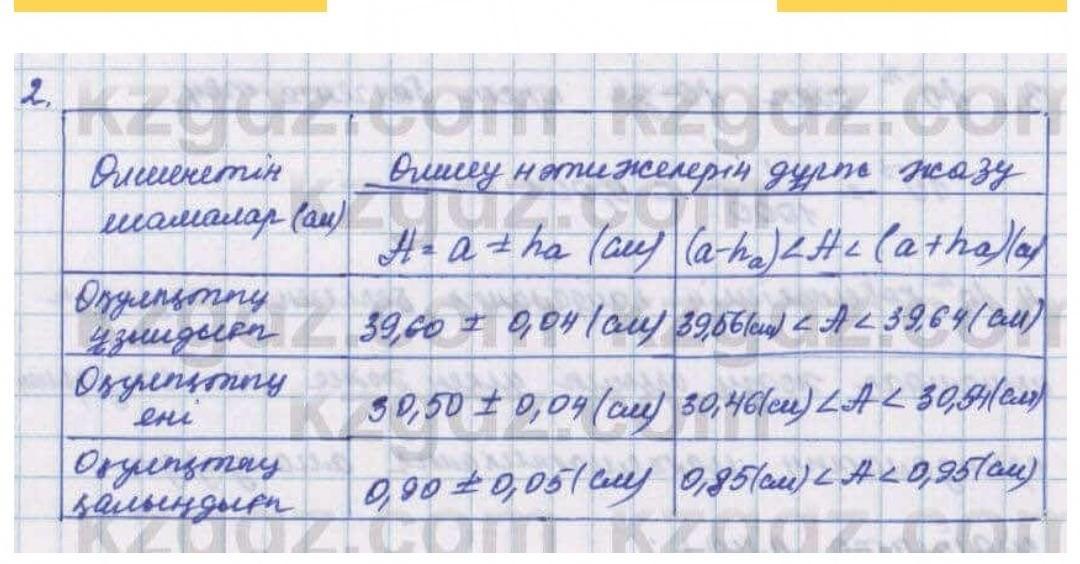 2.
Өлшенетін
шамалар (см)
Өлшеу нәтижелерін дұрыс жазу
A = a ± ha (см)
(a-ha) < A < (a + ha)(см)
Оқулықтың
ұзындығы
39,60 ± 0,04 (см)
39,56(см) < A < 39,64 (см)
Оқулықтың
ені
30,50 ± 0,04 (см)
30,46(см) < A < 30,54(см)
Оқулықтың
қалыңдығы
0,90 ± 0,05 (см)
0,85(см) < A < 0,95(см)
kzgdz.com kzgdz.com
kzgdz.com
kzgdz.com
kzgdz.com kzgdz.com